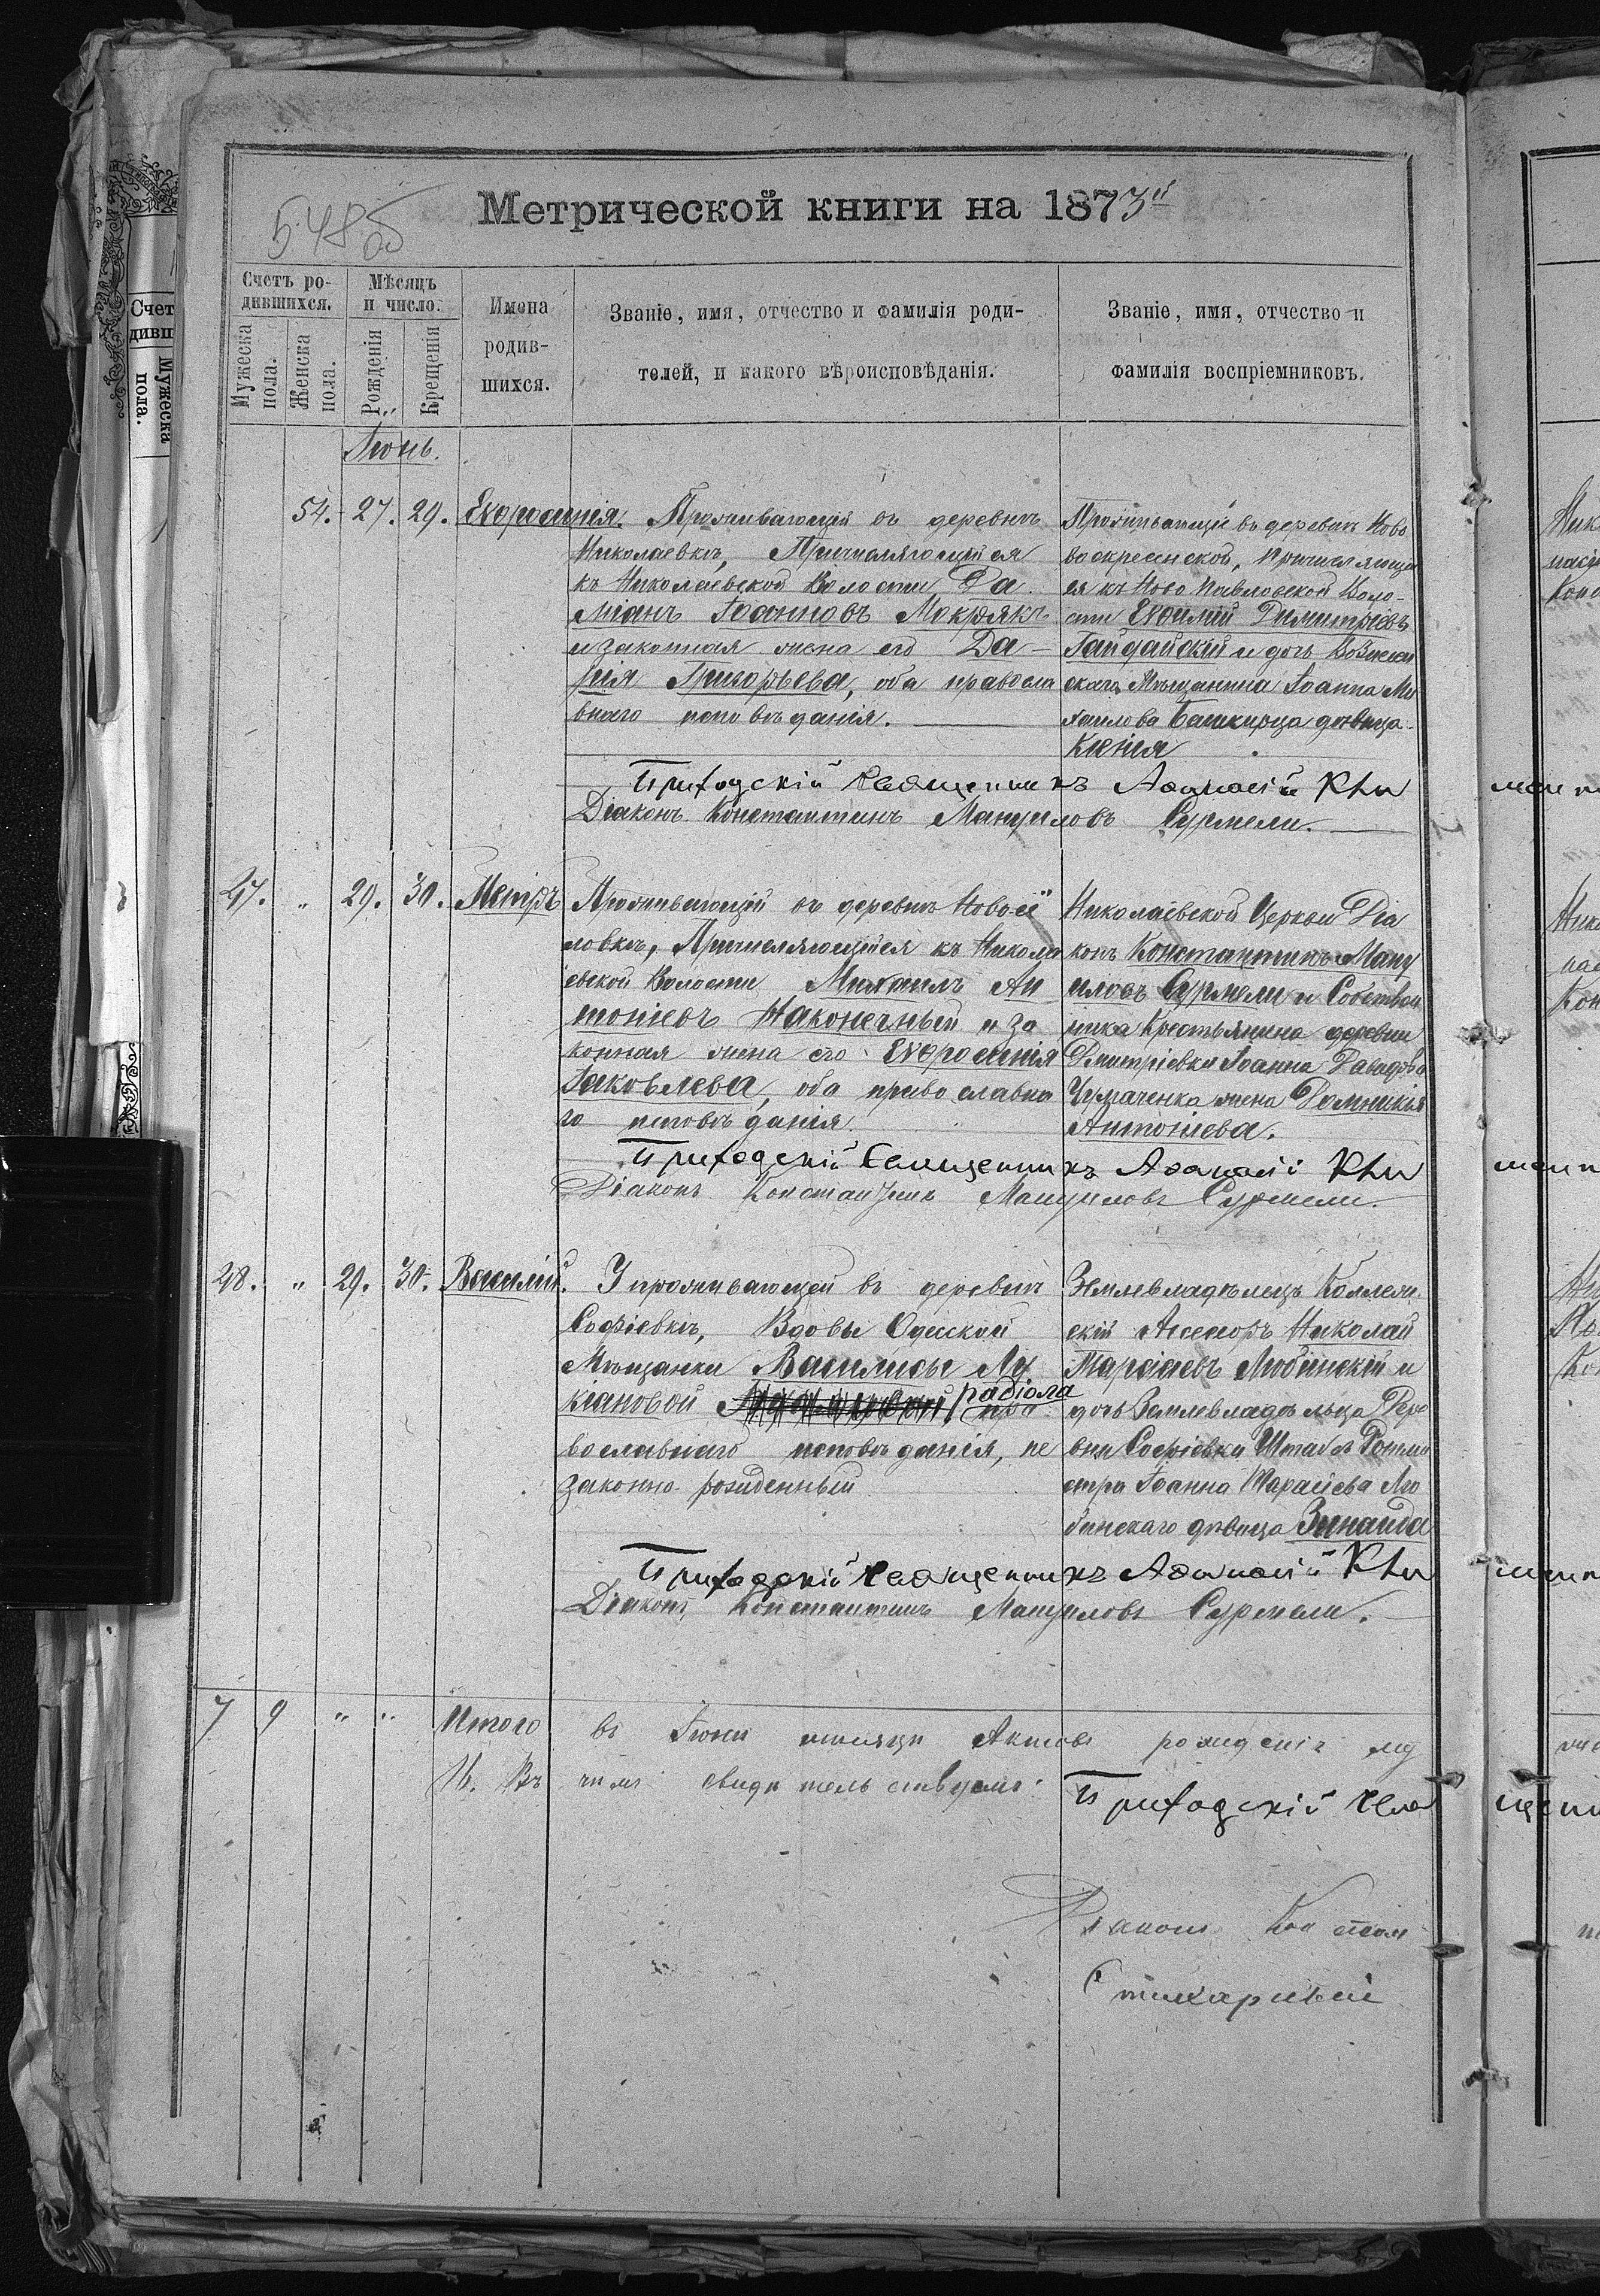 Метрической книги на 1873й
548 об
Счетъ ро-
дившихся.
Мѣсяцъ
и число.
Мужеска
пола.
Женска
пола.
Рожденія
Крещенія
Имена
родив-
шихся.
Званіе, имя, отчество и фамилія роди-
телей, и какого вѣроисповѣданія.
Званіе, имя, отчество и
фамилія воспріемниковъ.
Іюнь.
54. 27. 29. Евфросинія.
Проживающій въ деревнѣ
Николаевкѣ, Причисляющійся
къ Николаевской Волости Да
міанъ Іоанновъ Мокрякъ
и законная жена его Да-
рія Григорьева, оба правосла
внаго исповѣданія.
Проживающіе въ деревнѣ Ново
воскресенской, причисляющій
ся къ Ново Павловской Воло-
сти Евфимій Димитріевъ
Гайдайскій и дочь Вознесен
скаго Мѣщанина Іоанна Ми
хаилова Башкирца дѣвица
Ксенія
Приходскій Священникъ Аѳанасій
Діаконъ Константинъ Мануиловъ Сурмели.
47. " 29. 30. Петръ
Проживающій въ деревнѣ Ново-
ловкѣ, Причисляющійся къ Никола
евской Волости Михаилъ Ан
тоніевъ Наконечный и за
конная жена его Евфросинія
Іаковлева, оба православна
го исповѣданія.
Николаевской Церкви Діа
конъ Константинъ Ману
иловъ Сурмели и Собствен
ника Крестьянина деревни
Дмитріевки Іоанна Давидова
Чумаченка жена Домникія
Антоніева.
Приходскій Священникъ Аѳанасій
Діаконъ Константинъ Мануиловъ Сурмели.
48. " 29. 30. Василій.
У проживающей въ деревнѣ
Софіевкѣ, Вдовы Одесской
Мѣщанки Василисы Лу
кіановой пра
вославнаго исповѣданія, не
законно рожденный
Землевладѣлецъ Коллеж
скій Асессоръ Николай
Тарасіевъ Любинскій и
дочь Землевладѣльца Дере
вни Софіевки Штабъ Ротми
стра Іоанна Тарасіева Лю
бинскаго дѣвица Зинаида
Приходскій Священникъ Аѳанасій
Діаконъ Константинъ Мануиловъ Сурмели.
7 9 " " Итого въ Іюнѣ мѣсяцѣ Актовъ рожденія
16. Въ чемъ свидѣтельствуемъ:
Приходскій Свя
Діаконъ Констан